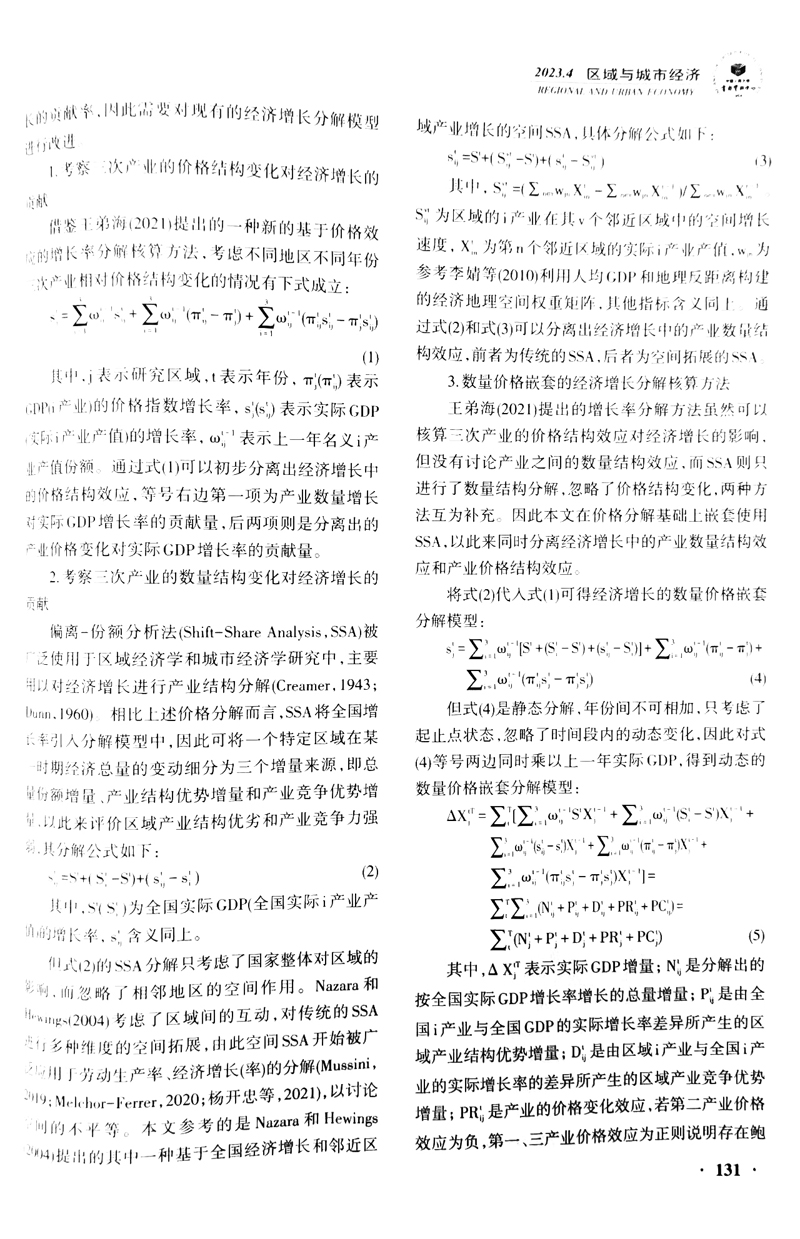 2023.4 区域与城市经济
REGIONAL AND URBAN ECONOMY
的贡献率,因此需要对现有的经济增长分解模型
进行改进
1.考察三次产业的价格结构变化对经济增长的
贡献
借鉴王弟海(2021)提出的一种新的基于价格效
应的增长率分解核算方法,考虑不同地区不同年份
三次产业相对价格结构变化的情况有下式成立:
(1)
其中,j表示研究区域,t表示年份,πʲᵗ(πᵢⱼᵗ)表示
GDP(i产业)的价格指数增长率,sⱼᵗ(sᵢⱼᵗ)表示实际GDP
(实际i产业产值)的增长率,ωᵢⱼᵗ⁻¹表示上一年名义i产
业产值份额。通过式(1)可以初步分离出经济增长中
的价格结构效应,等号右边第一项为产业数量增长
对实际GDP增长率的贡献量,后两项则是分离出的
产业价格变化对实际GDP增长率的贡献量。
2.考察三次产业的数量结构变化对经济增长的
贡献
偏离-份额分析法(Shift-Share Analysis,SSA)被
广泛使用于区域经济学和城市经济学研究中,主要
用以对经济增长进行产业结构分解(Creamer,1943;
Dunn,1960)。相比上述价格分解而言,SSA将全国增
长率引入分解模型中,因此可将一个特定区域在某
一时期经济总量的变动细分为三个增量来源,即总
量份额增量、产业结构优势增量和产业竞争优势增
量,以此来评价区域产业结构优劣和产业竞争力强
弱,其分解公式如下:
sᵢⱼᵗ=Sᵗ+(Sᵢᵗ-Sᵗ)+(sᵢⱼᵗ-Sᵢᵗ) (2)
其中,Sᵗ(Sᵢᵗ)为全国实际GDP(全国实际i产业产
值)的增长率,sᵢⱼᵗ含义同上。
但式(2)的SSA分解只考虑了国家整体对区域的
影响,而忽略了相邻地区的空间作用。Nazara和
Hewings(2004)考虑了区域间的互动,对传统的SSA
进行多种维度的空间拓展,由此空间SSA开始被广
泛应用于劳动生产率、经济增长(率)的分解(Mussini,
2019;Melchor-Ferrer,2020;杨开忠等,2021),以讨论
空间的不平等。本文参考的是Nazara和Hewings
(2004)提出的其中一种基于全国经济增长和邻近区
域产业增长的空间SSA,具体分解公式如下:
(3)
为区域的i产业在其v个邻近区域中的空间增长
速度,为第n个邻近区域的实际i产业产值,为
参考李婧等(2010)利用人均GDP和地理反距离构建
的经济地理空间权重矩阵,其他指标含义同上。通
过式(2)和式(3)可以分离出经济增长中的产业数量结
构效应,前者为传统的SSA,后者为空间拓展的SSA。
3.数量价格嵌套的经济增长分解核算方法
王弟海(2021)提出的增长率分解方法虽然可以
核算三次产业的价格结构效应对经济增长的影响,
但没有讨论产业之间的数量结构效应,而SSA则只
进行了数量结构分解,忽略了价格结构变化,两种方
法互为补充。因此本文在价格分解基础上嵌套使用
SSA,以此来同时分离经济增长中的产业数量结构效
应和产业价格结构效应。
将式(2)代入式(1)可得经济增长的数量价格嵌套
分解模型:
(4)
但式(4)是静态分解,年份间不可相加,只考虑了
起止点状态,忽略了时间段内的动态变化,因此对式
(4)等号两边同时乘以上一年实际GDP,得到动态的
数量价格嵌套分解模型:
∑ₜᵀ∑ᵢ₌₁³(Nᵢⱼᵗ+Pᵢⱼᵗ+Dᵢⱼᵗ+PRᵢⱼᵗ+PCᵢⱼᵗ)=
∑ₜᵀ(Nⱼᵗ+Pⱼᵗ+Dⱼᵗ+PRⱼᵗ+PCⱼᵗ) (5)
其中,ΔXⱼᵗᵀ表示实际GDP增量;Nᵢⱼᵗ是分解出的
按全国实际GDP增长率增长的总量增量;Pᵢⱼᵗ是由全
国i产业与全国GDP的实际增长率差异所产生的区
域产业结构优势增量;Dᵢⱼᵗ是由区域i产业与全国i产
业的实际增长率的差异所产生的区域产业竞争优势
增量;PRᵢⱼᵗ是产业的价格变化效应,若第二产业价格
效应为负,第一、三产业价格效应为正则说明存在鲍
· 131 ·